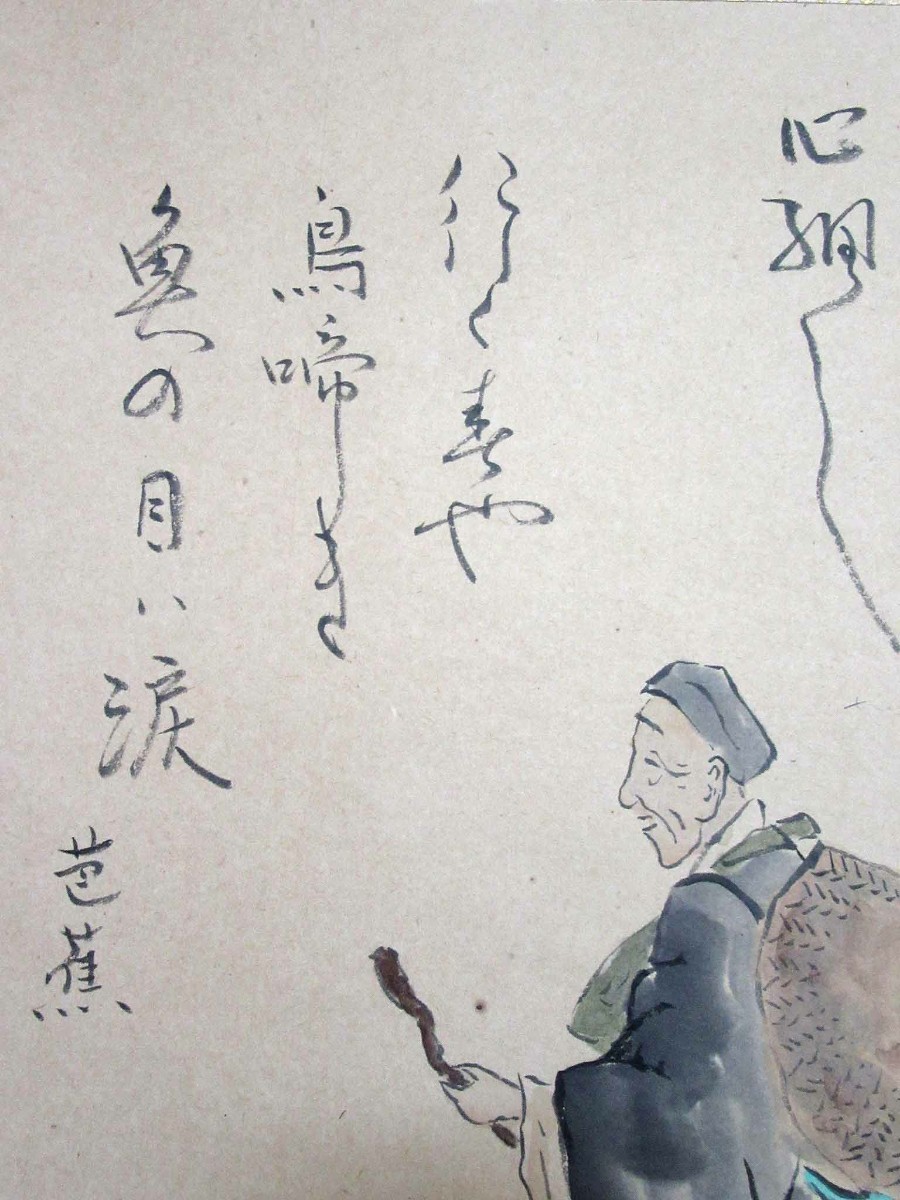 心細し
行く春や
鳥啼き
魚の目ハ涙
芭蕉